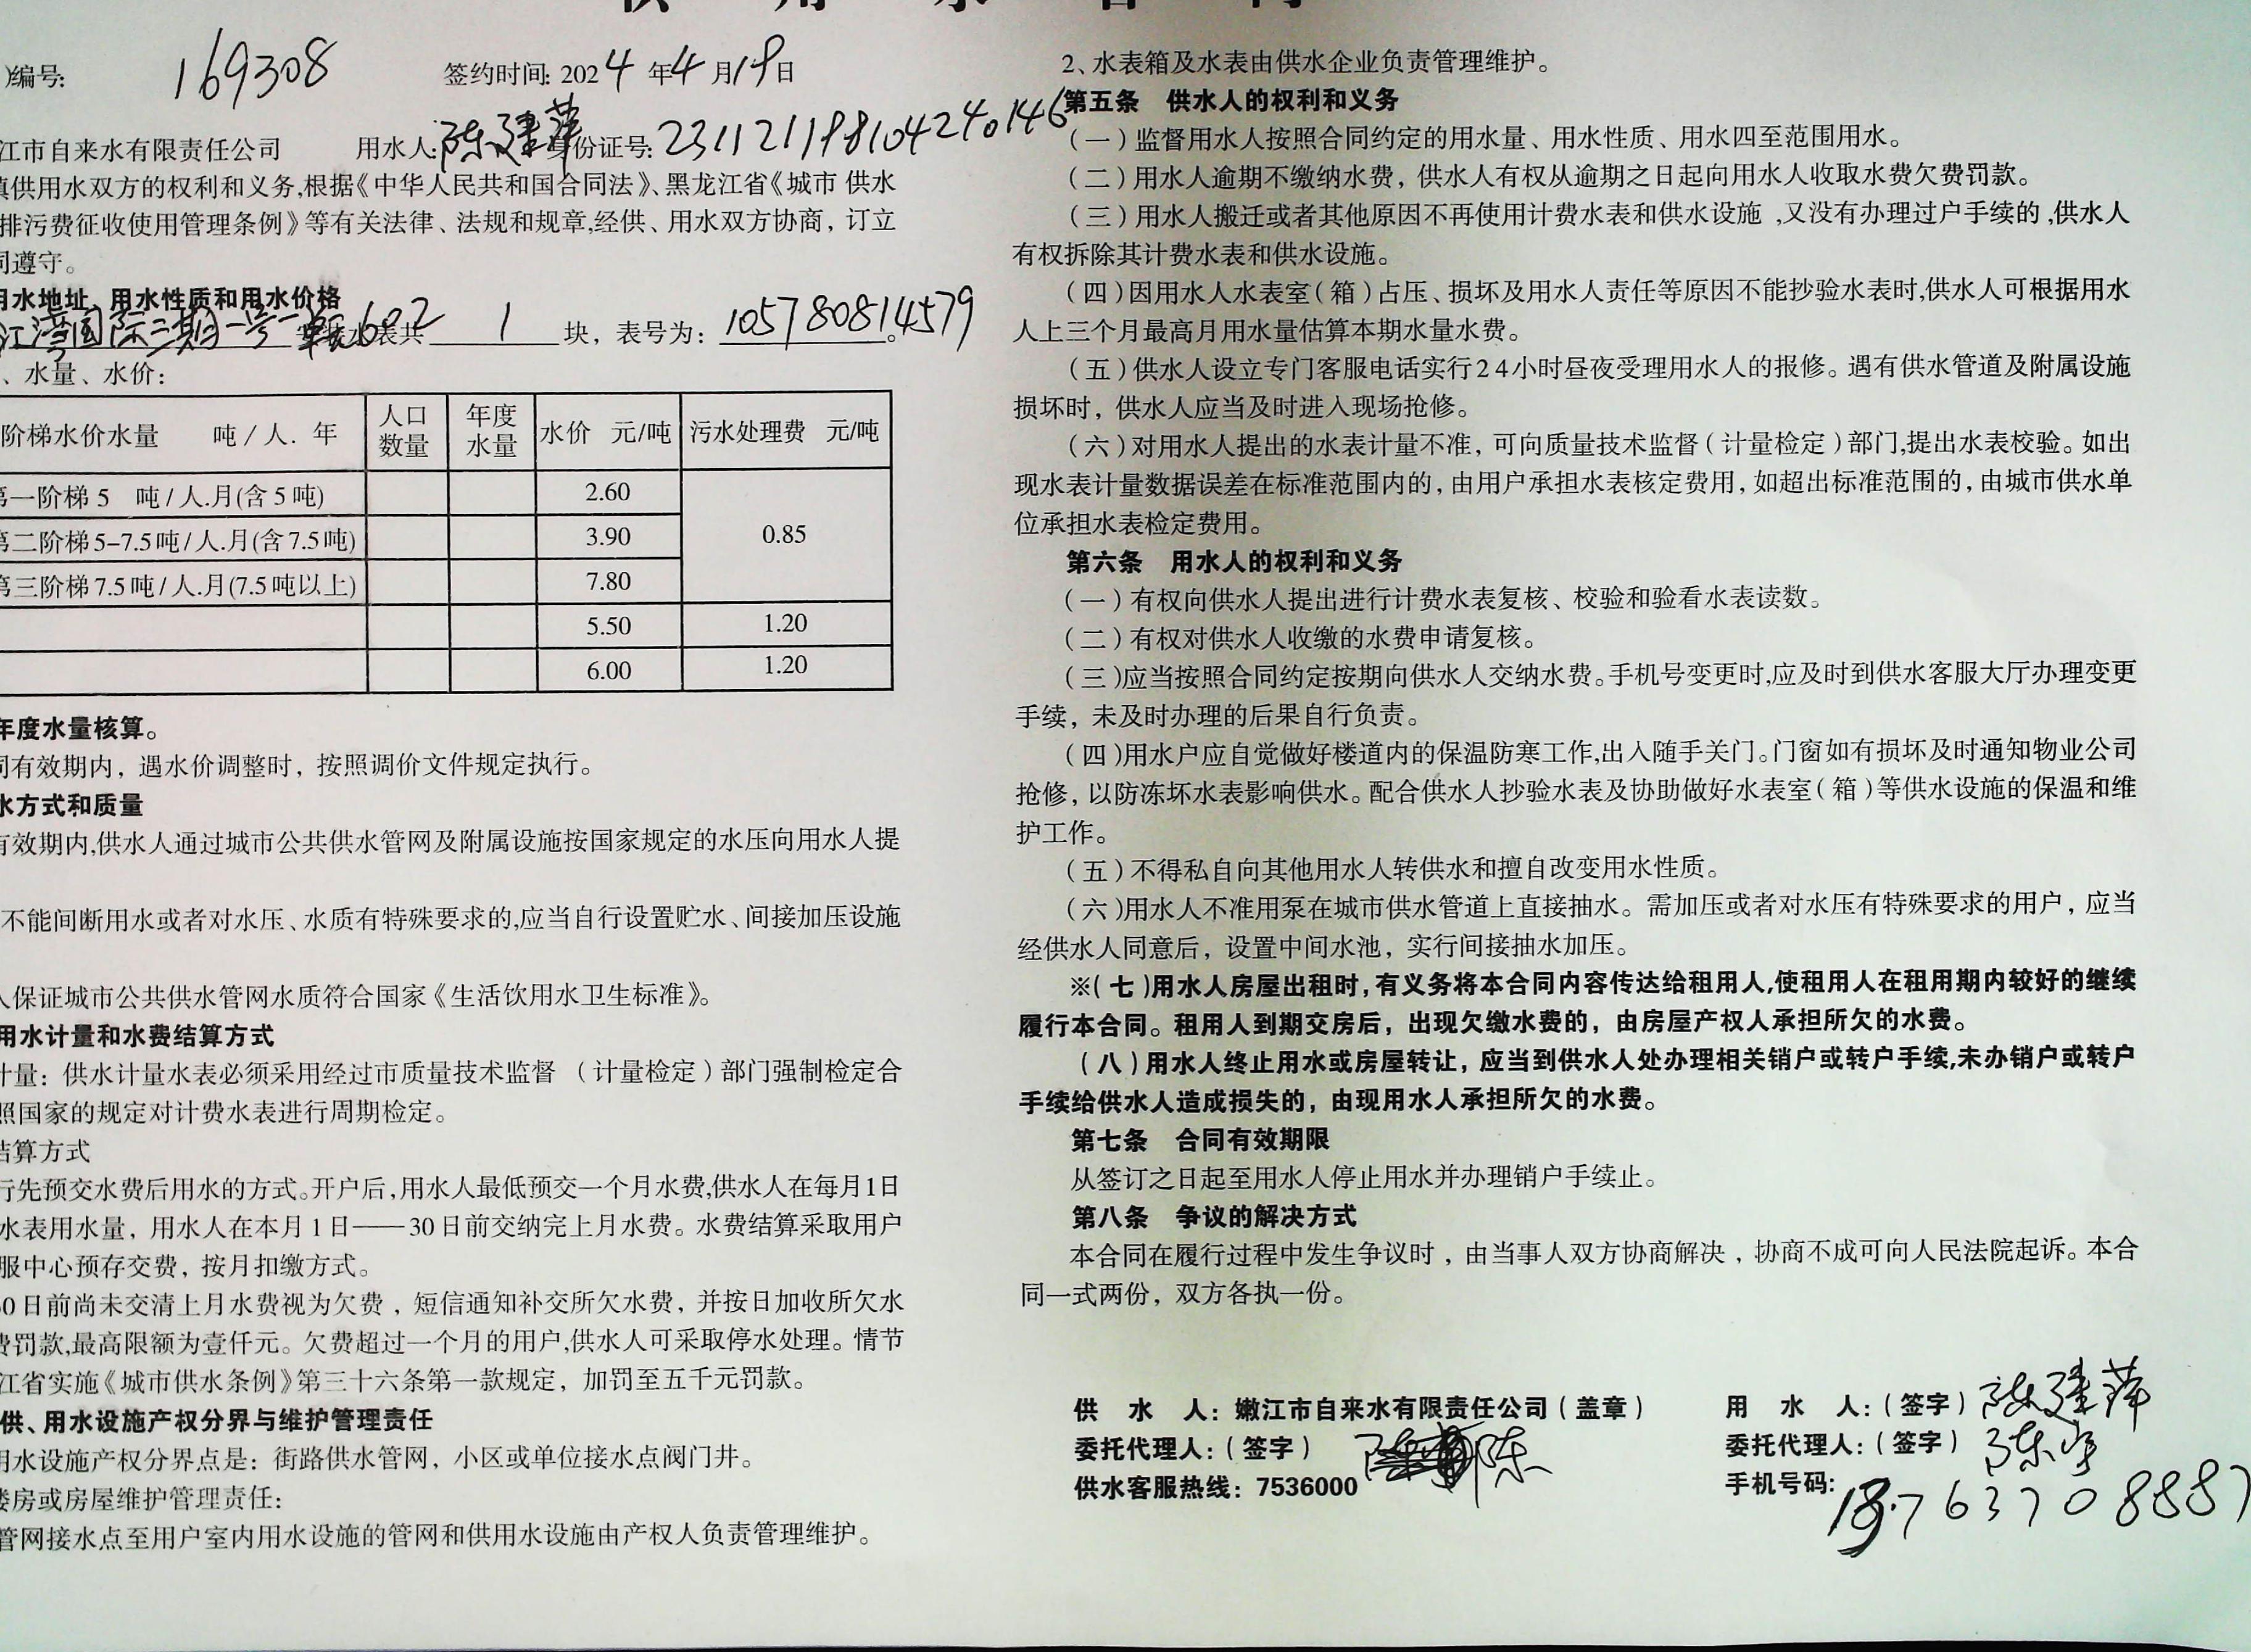 供用水合同
)编号: 169308 签约时间: 2024年4月19日
江市自来水有限责任公司 用水人: 陈建萍 身份证号: 231121198104240146
供用水双方的权利和义务,根据《中华人民共和国合同法》、黑龙江省《城市 供水
排污费征收使用管理条例》等有关法律、法规和规章,经供、用水双方协商，订立
同遵守。
用水地址、用水性质和用水价格
江湾国际三期一号一单元602 水表共 1 块，表号为: 105780814579。
、水量、水价:
阶梯水价水量 吨/人. 年 人口数量 年度水量 水价 元/吨 污水处理费 元/吨
第一阶梯 5 吨/人.月(含5吨) 2.60 0.85
第二阶梯5-7.5吨/人.月(含7.5吨) 3.90
第三阶梯7.5吨/人.月(7.5吨以上) 7.80
5.50 1.20
6.00 1.20
年度水量核算。
同有效期内，遇水价调整时，按照调价文件规定执行。
水方式和质量
有效期内,供水人通过城市公共供水管网及附属设施按国家规定的水压向用水人提
不能间断用水或者对水压、水质有特殊要求的,应当自行设置贮水、间接加压设施
人保证城市公共供水管网水质符合国家《生活饮用水卫生标准》。
用水计量和水费结算方式
计量：供水计量水表必须采用经过市质量技术监督 (计量检定)部门强制检定合
照国家的规定对计费水表进行周期检定。
结算方式
行先预交水费后用水的方式。开户后,用水人最低预交一个月水费,供水人在每月1日
水表用水量，用水人在本月1日——30日前交纳完上月水费。水费结算采取用户
服中心预存交费，按月扣缴方式。
0日前尚未交清上月水费视为欠费，短信通知补交所欠水费，并按日加收所欠水
费罚款,最高限额为壹仟元。欠费超过一个月的用户,供水人可采取停水处理。情节
江省实施《城市供水条例》第三十六条第一款规定，加罚至五千元罚款。
供、用水设施产权分界与维护管理责任
用水设施产权分界点是：街路供水管网，小区或单位接水点阀门井。
楼房或房屋维护管理责任:
管网接水点至用户室内用水设施的管网和供用水设施由产权人负责管理维护。
2、水表箱及水表由供水企业负责管理维护。
第五条 供水人的权利和义务
(一)监督用水人按照合同约定的用水量、用水性质、用水四至范围用水。
(二)用水人逾期不缴纳水费，供水人有权从逾期之日起向用水人收取水费欠费罚款。
(三)用水人搬迁或者其他原因不再使用计费水表和供水设施 ,又没有办理过户手续的 ,供水人
有权拆除其计费水表和供水设施。
(四)因用水人水表室(箱)占压、损坏及用水人责任等原因不能抄验水表时,供水人可根据用水
人上三个月最高月用水量估算本期水量水费。
(五)供水人设立专门客服电话实行24小时昼夜受理用水人的报修。遇有供水管道及附属设施
损坏时，供水人应当及时进入现场抢修。
(六)对用水人提出的水表计量不准，可向质量技术监督(计量检定)部门,提出水表校验。如出
现水表计量数据误差在标准范围内的，由用户承担水表核定费用，如超出标准范围的，由城市供水单
位承担水表检定费用。
第六条 用水人的权利和义务
(一)有权向供水人提出进行计费水表复核、校验和验看水表读数。
(二)有权对供水人收缴的水费申请复核。
(三)应当按照合同约定按期向供水人交纳水费。手机号变更时,应及时到供水客服大厅办理变更
手续，未及时办理的后果自行负责。
(四)用水户应自觉做好楼道内的保温防寒工作,出入随手关门。门窗如有损坏及时通知物业公司
抢修，以防冻坏水表影响供水。配合供水人抄验水表及协助做好水表室(箱)等供水设施的保温和维
护工作。
(五)不得私自向其他用水人转供水和擅自改变用水性质。
(六)用水人不准用泵在城市供水管道上直接抽水。需加压或者对水压有特殊要求的用户，应当
经供水人同意后，设置中间水池，实行间接抽水加压。
※(七)用水人房屋出租时,有义务将本合同内容传达给租用人,使租用人在租用期内较好的继续
履行本合同。租用人到期交房后，出现欠缴水费的，由房屋产权人承担所欠的水费。
(八)用水人终止用水或房屋转让，应当到供水人处办理相关销户或转户手续,未办销户或转户
手续给供水人造成损失的，由现用水人承担所欠的水费。
第七条 合同有效期限
从签订之日起至用水人停止用水并办理销户手续止。
第八条 争议的解决方式
本合同在履行过程中发生争议时，由当事人双方协商解决，协商不成可向人民法院起诉。本合
同一式两份，双方各执一份。
供 水 人：嫩江市自来水有限责任公司(盖章) 用 水 人：(签字) 陈建萍
委托代理人：(签字) 委托代理人：(签字) 陈宇
供水客服热线：7536000 手机号码: 13763708887